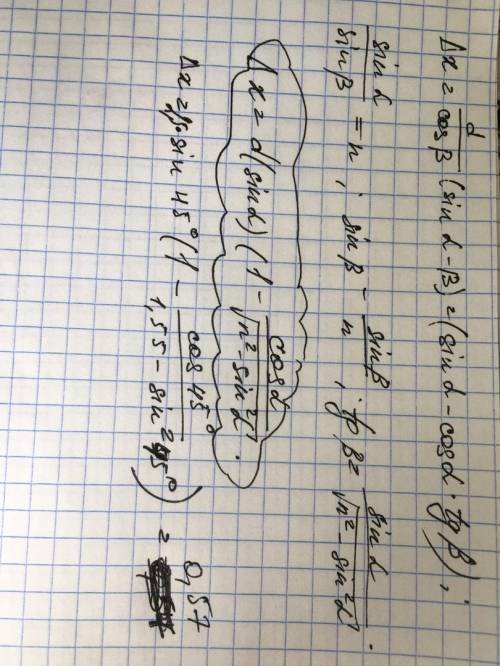 Δx = d/cosβ (sin α - β) = (sin α - cos α · tg β);
sin α/sin β = n; sin β - sin β/n; tg β = sin α/√(n² - sin² α).
Δx = d(sin α) (1 - cos α/√(n² - sin² α)).
sin 45° (1 - cos 45°/1,55 - sin² 45°) = 0,57